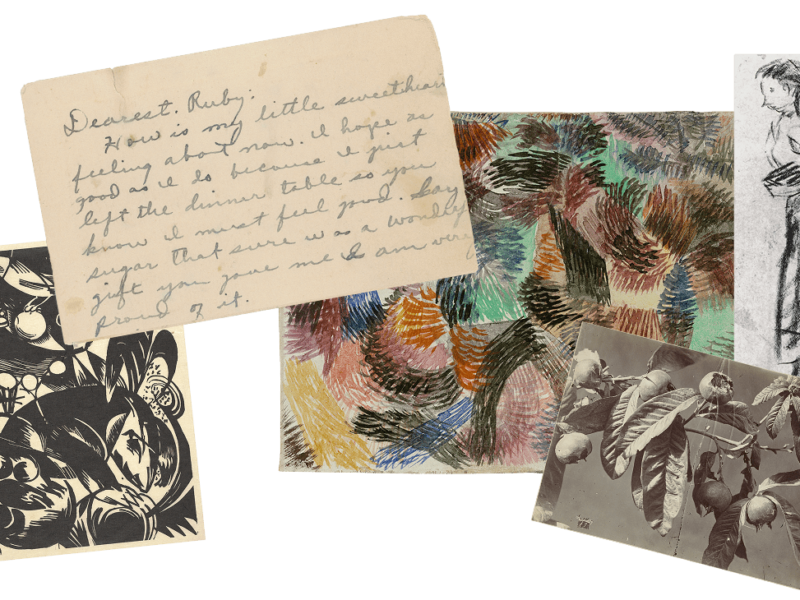 Dearest Ruby:
How is my little sweetheart
feeling about now. I hope as
good as I do because I just
left the dinner table so you
know I must feel good. Say
sugar that sure was a wonderful
gift you gave me I am very
proud of it.